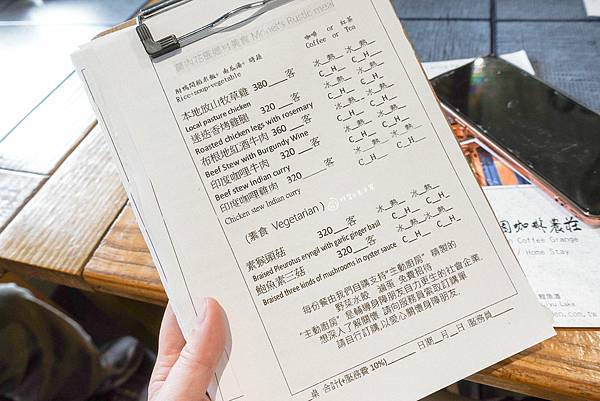 莫內花園鄉村美食 Monet's Rustic meal
附鴨間稻米飯, 南瓜湯, 時蔬
Rice+soup+vegetable
咖啡 or 紅茶
Coffee or Tea
本地放山牧草雞 380___客 水__熱__ 水__熱__
Local pasture chicken C__H__ C__H__
迷迭香烤雞腿 320___客 水__熱__ 水__熱__
Roasted chicken legs with rosemary C__H__ C__H__
布根地紅酒牛肉 360___客 水__熱__ 水__熱__
Beef Stew with Burgundy Wine C__H__ C__H__
印度咖哩牛肉 320___客 水__熱__ 水__熱__
Beef stew Indian curry C__H__ C__H__
印度咖哩雞肉 320___客 水__熱__ 水__熱__
Chicken stew Indian curry C__H__ C__H__
(素食 Vegetarian )
素猴頭菇 320___客 水__熱__ 水__熱__
Braised Pleurotus eryngii with garlic ginger basil C__H__ C__H__
鮑魚素三菇 320___客 水__熱__ 水__熱__
Braised three kinds of mushrooms in oyster sauce C__H__ C__H__
每份餐由我們自購支持"主動廚房" 精製的
野菜水餃 滷蛋 免費招待
"主動廚房" 是輔導身障朋友自力更生的社會企業
想深入了解關懷 請向服務員索取訂購單
請自行訂購,以愛心關懷身障朋友.
___桌 合計(+服務費 10%)______ 日期__月__日 服務員____
園咖啡農莊
Coffee Grange
Home Stay
鯉魚潭
Lake